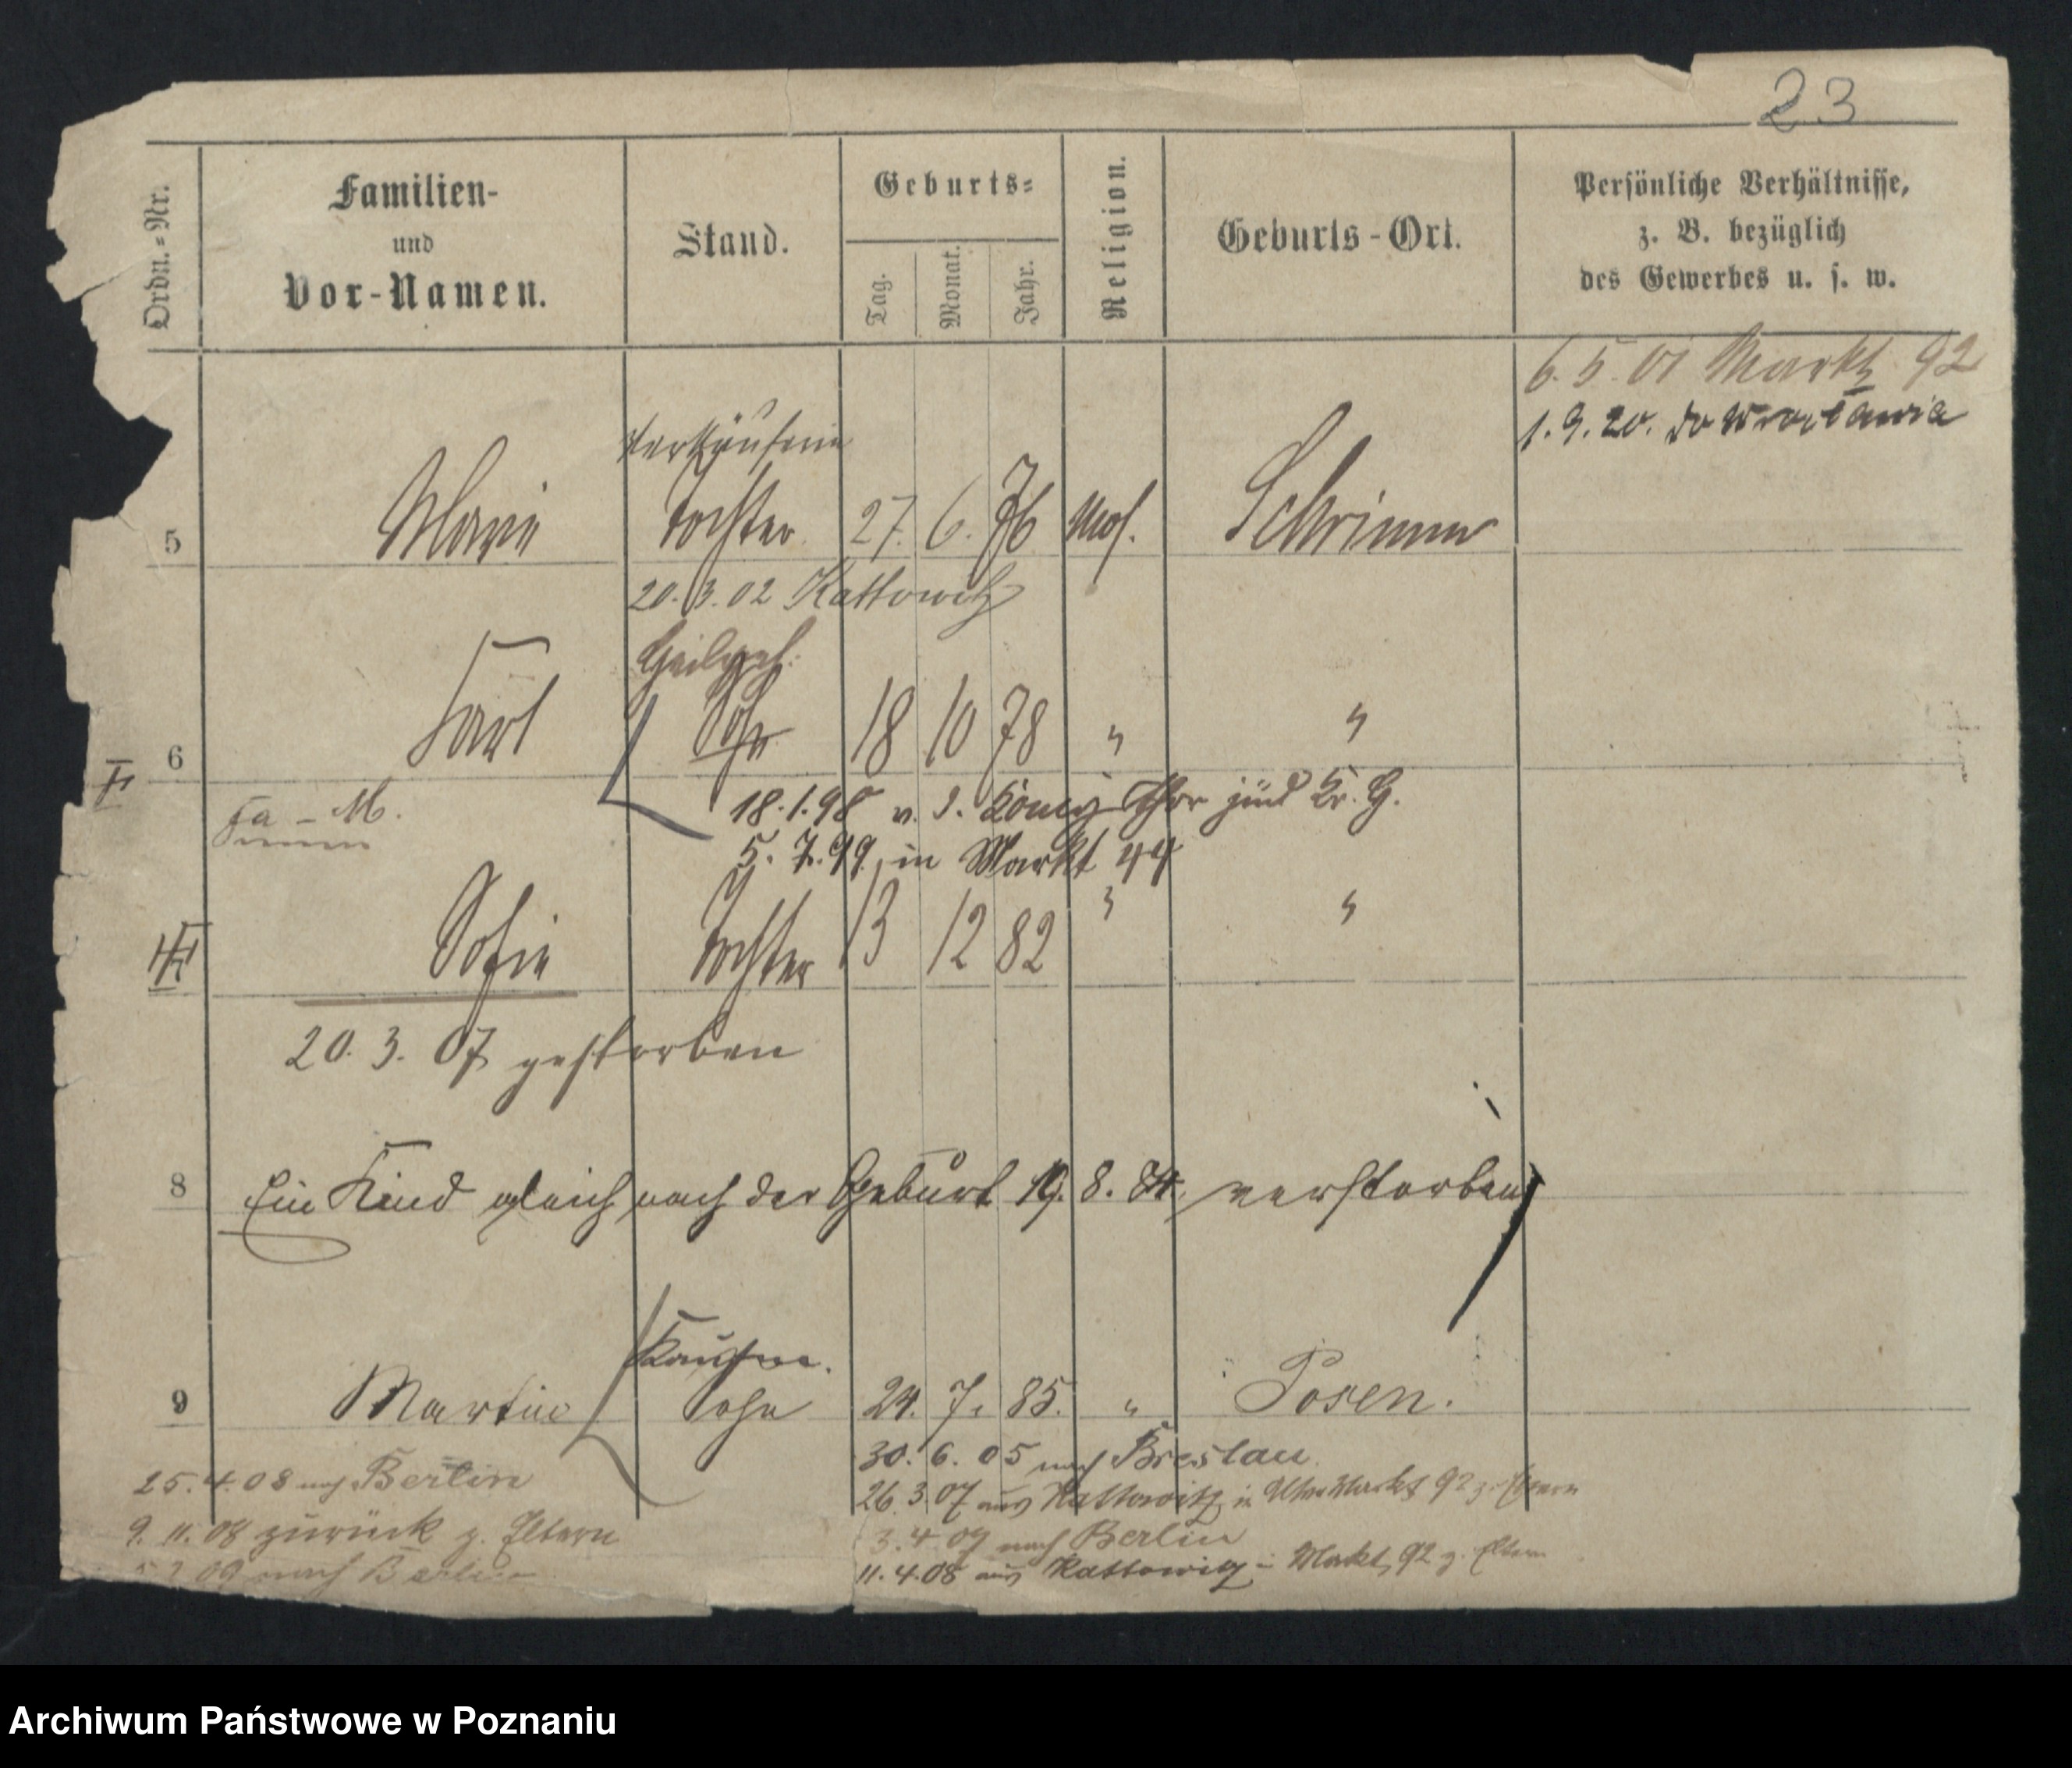 23
Ordn.-Nr.
Familien-
und
Vor-Namen.
Stand.
Geburts-
Tag.
Monat.
Jahr.
Religion.
Geburts-Ort.
Persönliche Verhältnisse,
z. B. bezüglich
des Gewerbes u. s. w.
6. 5. 01 Markt 92
1. 9. 20. do Wrocławia
Verkäuferin
5 Marie Tochter 27. 6. 76 Mos. Schrimm
20. 3. 02 Kattowitz
6 Karl Sohn 18 10 78 " "
18. 1. 98 v. d. König Thor
5. 7. 99 in Markt 44
Sofie Tochter 13 12 82 " "
20. 3. 07 gestorben
8 Ein Kind gleich nach der Geburt 19. 8. 84 verstorben
Kaufm.
9 Martin Sohn 24. 7. 85. " Posen.
30. 6. 05 nach Breslau
26. 3. 07 aus Kattowitz in Alter Markt 92 z. Eltern
3. 4. 07 nach Berlin
11. 4. 08 aus Kattowitz in Markt 92 z. Eltern
25. 4. 08 nach Berlin
9. 11. 08 zurück z. Eltern
09 nach Berlin
Archiwum Państwowe w Poznaniu